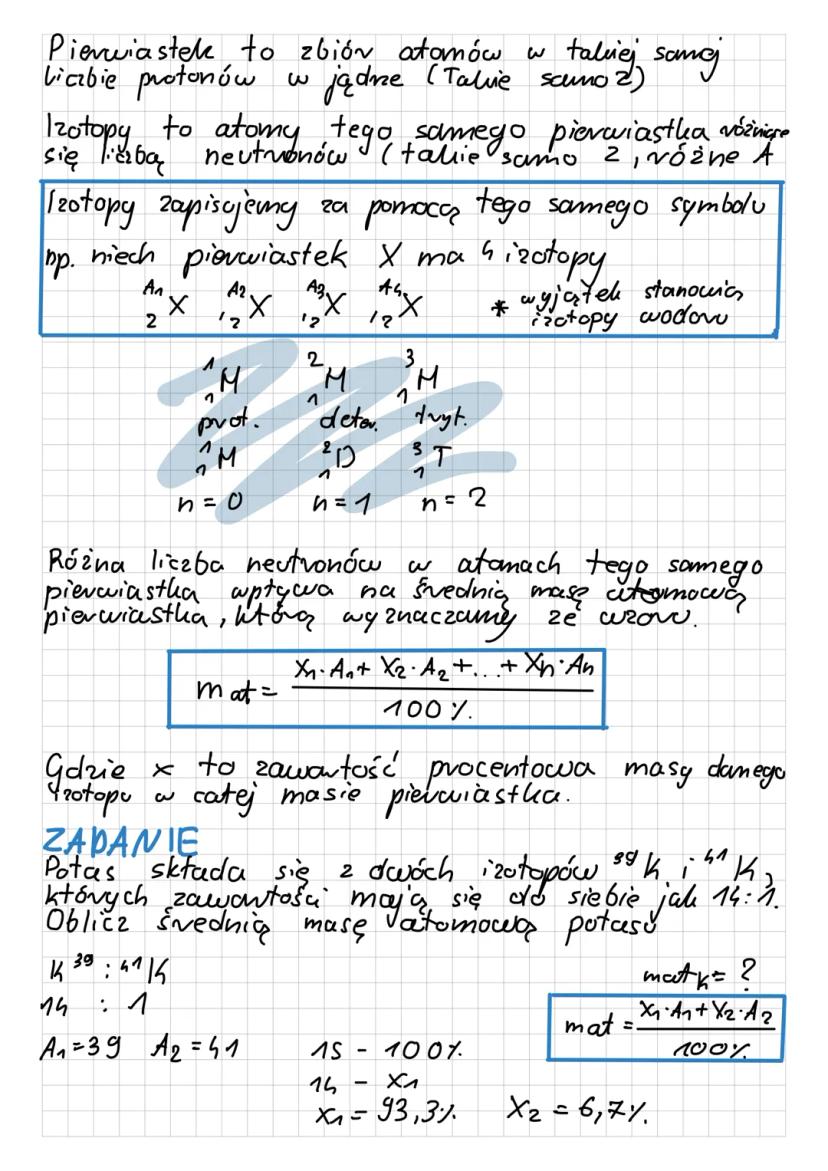 Pierwiastek to zbiór atomów w takiej samej
liczbie protonów w jądrze (Takie samo Z)
Izotopy to atomy tego samego pierwiastka różniące
się liczbą neutronów (takie samo Z, różne A
Izotopy zapisujemy za pomocą tego samego symbolu
np. niech pierwiastek X ma 4 izotopy
A1 Z X A2 Z X A3 Z X A4 Z X * wyjątek stanowią
izotopy wodoru
1 1 H 2 1 H 3 1 H
prot. deter. tryt.
1 1 H 2 1 D 3 1 T
n = 0 n = 1 n = 2
Różna liczba neutronów w atomach tego samego
pierwiastka wpływa na średnią masę atomową
pierwiastka, którą wyznaczamy ze wzoru.
mat = X1·A1 + X2·A2 +...+ Xn·An / 100%
Gdzie x to zawartość procentowa masy danego
izotopu w całej masie pierwiastka.
ZADANIE
Potas składa się z dwóch izotopów ³⁹K i ⁴¹K,
których zawartości mają się do siebie jak 14:1.
Oblicz średnią masę atomową potasu
K ³⁹ : ⁴¹K
14 : 1
A1 = 39 A2 = 41
mat K = ?
mat = X1·A1 + X2·A2 / 100%
15 - 100%
14 - X1
X1 = 93,3% X2 = 6,7%